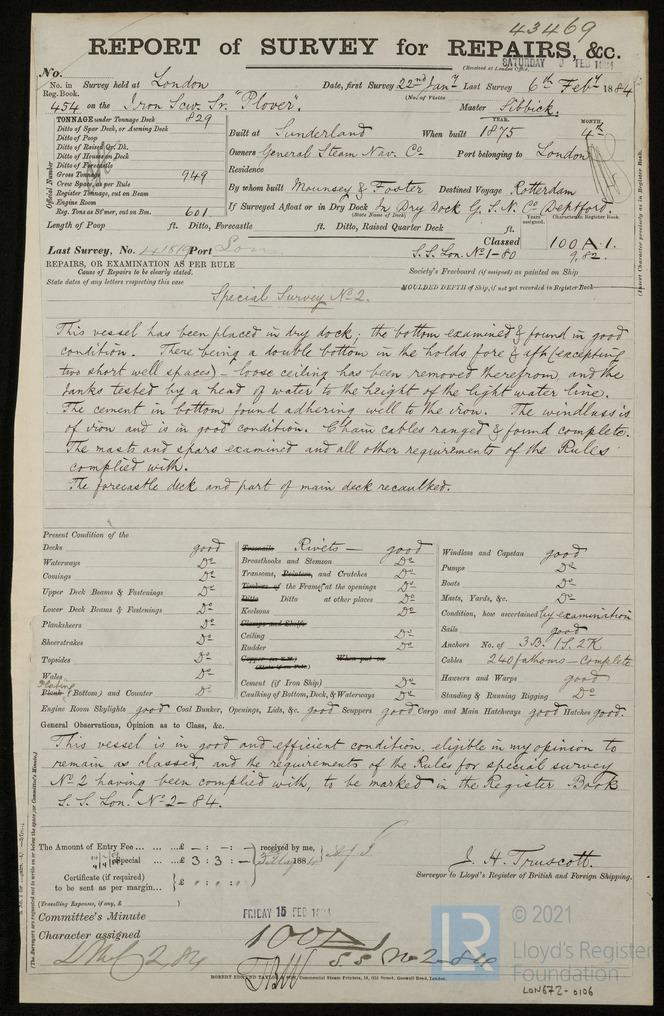 43469
REPORT of SURVEY for REPAIRS, &c.
(Received at London Office, SATURDAY 9 FEB 1884
No.
No. in Reg. Book. Survey held at London Date, first Survey 22nd Jany Last Survey 6th Feby 1884
(No. of Visits
454 on the Iron Scw. Sr. "Plover". Master Sibbick.
TONNAGE under Tonnage Deck 829
Ditto of Spar Deck, or Awning Deck
Ditto of Poop
Ditto of Raised Qr. Dk.
Ditto of Houses on Deck
Ditto of Forecastle
Gross Tonnage 949
Crew Space, as per Rule
Register Tonnage, cut on Beam
Engine Room
Reg. Tons as St'mer, cut on Bm. 601
Official Number
YEAR. MONTH.
Built at Sunderland When built 1875 4th
Owners General Steam Nav. Co Port belonging to London
Residence
By whom built Mounsey & Foster Destined Voyage Rotterdam
If Surveyed Afloat or in Dry Dock In Dry Dock G. S. N. Co Deptford.
(State Name of Dock) Years assigned. Character in Register Book.
Length of Poop ft. Ditto, Forecastle ft. Ditto, Raised Quarter Deck ft.
Last Survey, No. Port Lon Classed 100 A.1.
S. S. Lon. No 1-80 9,82.
REPAIRS, OR EXAMINATION AS PER RULE
Cause of Repairs to be clearly stated.
State dates of any letters respecting this case
Society's Freeboard (if assigned) as painted on Ship
MOULDED DEPTH of Ship, if not yet recorded in Register Book
(Insert Character precisely as in Register Book.
Special Survey No 2.
This vessel has been placed in dry dock; the bottom examined & found in good
condition. There being a double bottom in the holds fore & aft (excepting
two short well spaces) - loose ceiling has been removed therefrom and the
tanks tested by a head of water to the height of the light water line.
The cement in bottom found adhering well to the iron. The windlass is
of iron and is in good condition. Chain cables ranged & found complete.
The masts and spars examined and all other requirements of the Rules
complied with.
The forecastle deck and part of main deck recaulked.
Present Condition of the
Decks good
Waterways Do
Comings Do
Upper Deck Beams & Fastenings Do
Lower Deck Beams & Fastenings Do
Planksheers Do
Sheerstrakes Do
Topsides Do
Wales Do
Plating
Plank (Bottom) and Counter Do
Treenails Rivets — good
Breasthooks and Stemson Do
Transoms, Pointers, and Crutches Do
Timbers of the Frames at the openings Do
Ditto Ditto at other places Do
Keelsons Do
Clamps and Shelfs
Ceiling Do
Rudder Do
Copper or Y.M. When put on
(State if on Felt)
Cement (if Iron Ship) Do
Caulking of Bottom, Deck, & Waterways Do
Windlass and Capstan good
Pumps Do
Boats Do
Masts, Yards, &c. Do
Condition, how ascertained by examination
Sails good
Anchors No. of 3B. 1S. 2K
Cables 240 fathoms — Complete
Hawsers and Warps good
Standing & Running Rigging Do
Engine Room Skylights good Coal Bunker, Openings, Lids, &c. good Scuppers good Cargo and Main Hatchways good Hatches good.
General Observations, Opinion as to Class, &c.
This vessel is in good and efficient condition, eligible in my opinion to
remain as classed, and the requirements of the Rules for special survey
No 2 having been complied with, to be marked in the Register Book
S. S. Lon. No 2-84.
The Amount of Entry Fee ... ... ... £ - : - : - received by me,
Special ... ... £ 3 : 3 : - 188
Certificate (if required) to be sent as per margin... £
(Travelling Expenses, if any, £ )
J. H. Truscott.
Surveyor to Lloyd's Register of British and Foreign Shipping.
Committee's Minute FRIDAY 15 FEB 1884
Character assigned 100 A 1
S S No 2-84
LMC 2,84
(The Surveyors are requested not to write on or below the space for Committee's Minute.)
ROBERT EDMUND TAYLOR & SON, Commercial Steam Printers, 19, Old Street, Goswell Road, London.
LR
© 2021
Lloyd's Register
Foundation
LON672-0106